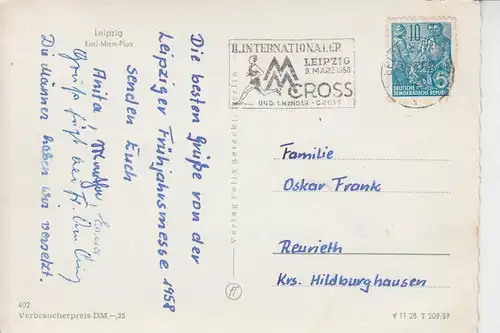 Leipzig
Karl-Marx-Platz
Die besten Grüße von der
Leipziger Frühjahrsmesse 1958
senden Euch
Anita
Die Männer haben uns versetzt.
402
Verbraucherpreis DM –,25
II. INTERNATIONALER
LEIPZIG
9. MÄRZ 1958
MM
CROSS
UND 1. KINDER-CROSS
10
5
DEUTSCHE
DEMOKRATISCHE REPUBLIK
Familie
Oskar Frank
Reurieth
Krs. Hildburghausen
V 11 28 T 209/57